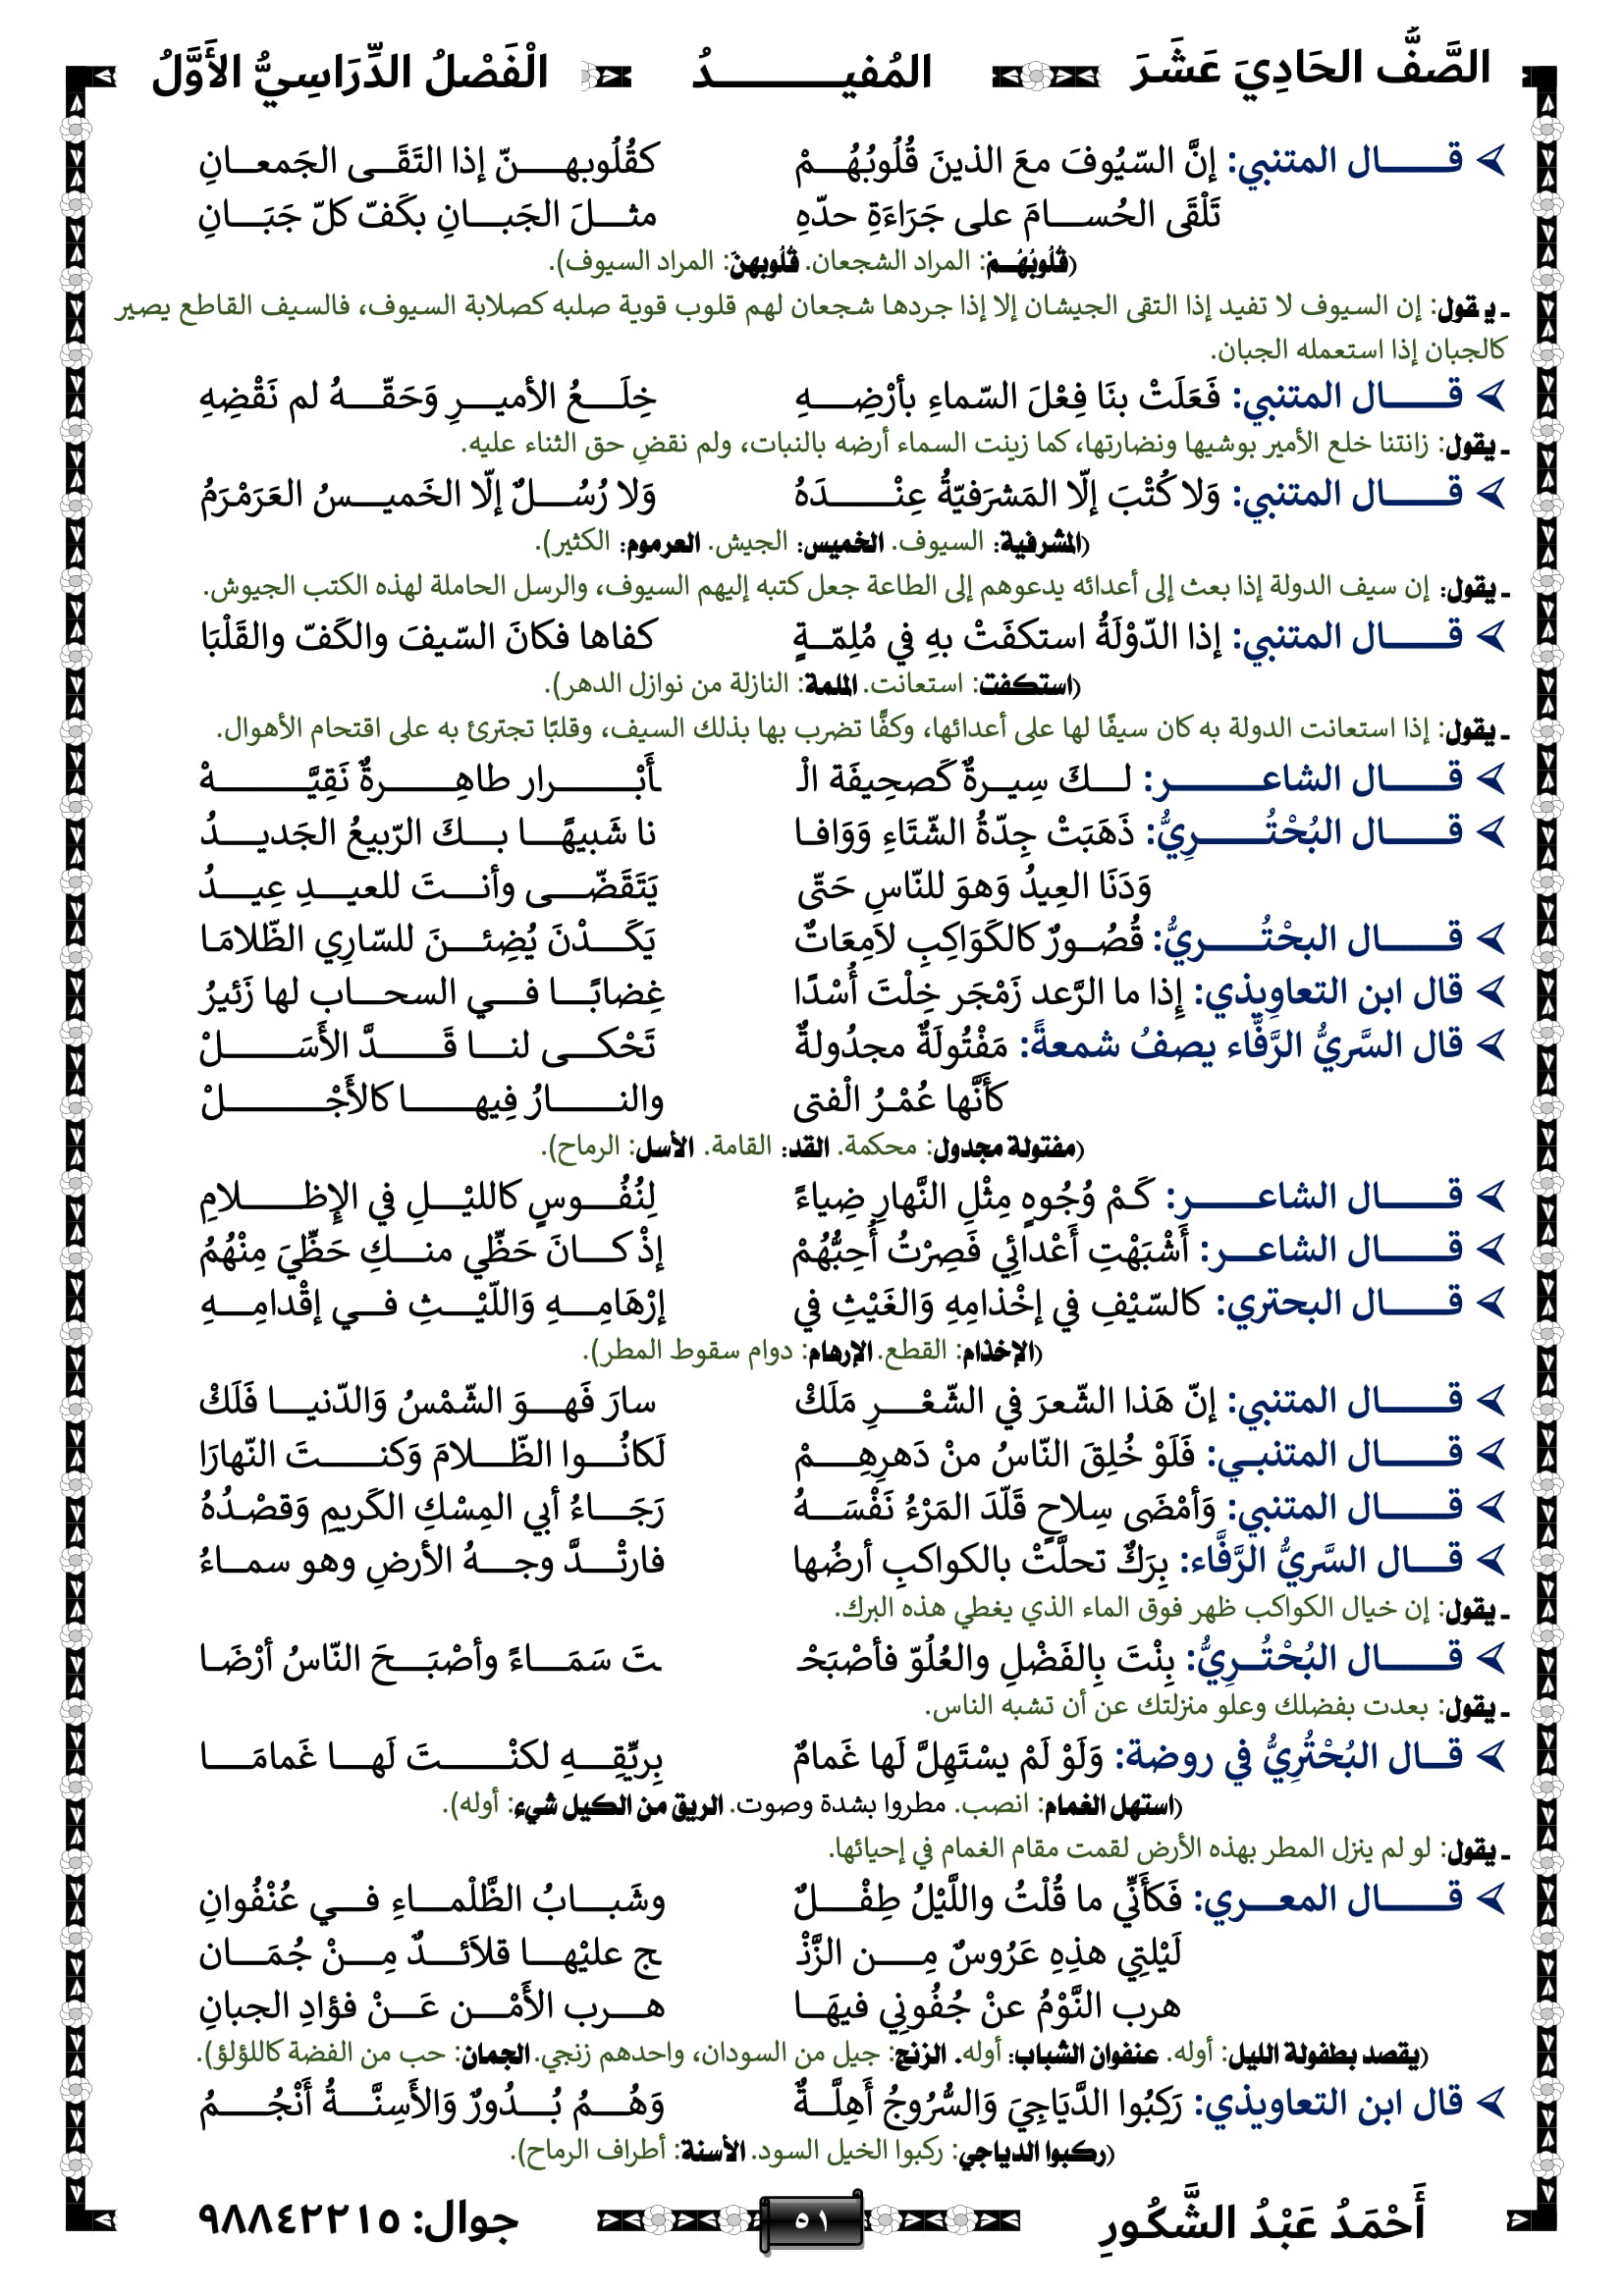 الصَّفُّ الحَادِيَ عَشَرَ المُفيـــــــــدُ الْفَصْلُ الدِّرَاسِيُّ الأَوَّلُ
قـــــال المتنبي: إنَّ السّيُوفَ معَ الذينَ قُلُوبُهُـــمْ كقُلُوبهـــــنّ إذا التَقَــى الجَمعــانِ
تَلْقَى الحُســـامَ على جَرَاءَةِ حدّهِ مثـــلَ الجَبـــانِ بكَفّ كلّ جَبَــانِ
(قُلُوبُهُـــمْ: المراد الشجعان. قُلُوبهنّ: المراد السيوف).
ـ يقول: إن السيوف لا تفيد إذا التقى الجيشان إلا إذا جردها شجعان لهم قلوب قوية صلبه كصلابة السيوف، فالسيف القاطع يصير
كالجبان إذا استعمله الجبان.
قـــــال المتنبي: فَعَلَتْ بنَا فِعْلَ السّماءِ بأرْضِــــهِ خِلَـــعُ الأميـــرِ وَحَقّـــهُ لم نَقْضِهِ
ـ يقول: زانتنا خلع الأمير بوشيها ونضارتها، كما زينت السماء أرضه بالنبات، ولم نقضِ حق الثناء عليه.
قـــــال المتنبي: وَلا كُتْبَ إلّا المَشرَفيّةُ عِنْـــــــدَهُ وَلا رُسُـــلٌ إلّا الخَميـــسُ العَرَمْرَمُ
(المشرفية: السيوف. الخميس: الجيش. العرموم: الكثير).
ـ يقول: إن سيف الدولة إذا بعث إلى أعدائه يدعوهم إلى الطاعة جعل كتبه إليهم السيوف، والرسل الحاملة لهذه الكتب الجيوش.
قـــــال المتنبي: إذا الدّوْلَةُ استكفَتْ بهِ في مُلِمّـــةٍ كفاها فكانَ السّيفَ والكَفّ والقَلْبَا
(استكفت: استعانت. الملمة: النازلة من نوازل الدهر).
ـ يقول: إذا استعانت الدولة به كان سيفًا لها على أعدائها، وكفًّا تضرب بها بذلك السيف، وقلبًا تجترئ به على اقتحام الأهوال.
قـــــال الشاعـــــــــر: لـــكَ سِيــرةٌ كَصحِيفَة الْـ ـأَبْـــــــرار طاهِـــــــرةٌ نَقِيَّـــــــــهْ
قـــــال البُحْتُـــــــرِيُّ: ذَهَبَتْ جِدّةُ الشّتَاءِ وَوَافــا نا شَبيهًـــا بـــكَ الرّبيعُ الجَديـــدُ
وَدَنَا العِيدُ وَهوَ للنّاسِ حَتّى يَتَقَضّـــى وأنـــتَ للعيـــدِ عِيـــدُ
قـــــال البحْتُـــــريُّ: قُصُــورٌ كالكَوَاكِبِ لاَمِعَاتٌ يَكَـــدْنَ يُضِئـــنَ للسّارِي الظّلامَـا
قال ابن التعاوِيذي: إِذا ما الرَّعد زَمْجَر خِلْتَ أُسْدًا غِضابًـــا فـــي السحـــاب لها زَئيرُ
قال السَّريُّ الرَّفَّاء يصفُ شمعةً: مَفْتُولَةٌ مجدُولةٌ تَحْكـــى لنـــا قَـــــدَّ الأَسَـــــــلْ
كأَنَّها عُمْـرُ الْفتى والنـــــــارُ فِيهـــــــا كالأَجْـــــــلْ
(مفتولة مجدول: محكمة. القد: القامة. الأسل: الرماح).
قـــــال الشاعـــــــر: كَـمْ وُجُوهٍ مِثْلِ النَّهارِ ضِياءً لِنُفُـــوسٍ كالليْـــلِ في الإِظـــــــلامِ
قـــــال الشاعـــر: أَشْبَهْتِ أَعْدائِي فَصِرْتُ أُحِبُّهُمْ إذْ كـــانَ حَظِّي منـــكِ حَظِّيَ مِنْهُمُ
قـــــال البحتري: كالسّيْفِ في إخْذامِهِ وَالغَيْثِ في إرْهَامِـــهِ وَاللّيْـــثِ فـــي إقْدامِـــهِ
(الإخذام: القطع. الإرهام: دوام سقوط المطر).
قـــــال المتنبي: إنّ هَذا الشّعرَ في الشّعْـــرِ مَلَكْ سارَ فَهـــوَ الشّمْسُ وَالدّنيـــا فَلَكْ
قـــــال المتنبـي: فَلَوْ خُلِقَ النّاسُ منْ دَهرِهِـــــمْ لَكانُـــوا الظّـــلامَ وَكنـــــتَ النّهارَا
قـــــال المتنبي: وَأمْضَى سِلاحٍ قَلّدَ المَرْءُ نَفْسَـــهُ رَجَـــاءُ أبي المِسْكِ الكَريمِ وَقصْدُهُ
قـــــال السَّريُّ الرَّفَّاء: بِرَكٌ تحلَّتْ بالكواكبِ أرضُها فارتْـــدَّ وجـــهُ الأرضِ وهو سمـاءُ
ـ يقول: إن خيال الكواكب ظهر فوق الماء الذي يغطي هذه البرك.
قـــــال البُحْتُــرِيُّ: بِنْتَ بِالفَضْلِ والعُلُوّ فأصْبَحْـ ـتَ سَمَـــاءً وأصْبَـــحَ النّاسُ أرْضَـا
ـ يقول: بعدت بفضلك وعلو منزلتك عن أن تشبه الناس.
قـــال البُحْتُرِيُّ في روضة: وَلَوْ لَمْ يسْتَهِلَّ لَها غَمامٌ بِريِّقِـــهِ لكنْـــــــتَ لَهـــا غَمامَـــا
(استهل الغمام: انصب. مطروا بشدة وصوت. الريق من الكيل شيء: أوله).
ـ يقول: لو لم ينزل المطر بهذه الأرض لقمت مقام الغمام في إحيائها.
قـــــال المعـــري: فَكأَنِّي ما قُلْتُ واللَّيْلُ طِفْـــلٌ وشَبـــابُ الظَّلْمـــاءِ فـــي عُنْفُوانِ
لَيْلتِي هذِهِ عَرُوسٌ مِـــن الزَّنْـ ـج عليْهـــا قلاَئـــدٌ مِـــنْ جُمَـــان
هرب النَّوْمُ عنْ جُفُونِي فيهَــا هـــرب الأَمْـــن عَـــنْ فؤادِ الجبانِ
(يقصد بطفولة الليل: أوله. عنفوان الشباب: أوله. الزنج: جيل من السودان، واحدهم زنجي. الجمان: حب من الفضة كاللؤلؤ).
قال ابن التعاويذي: رَكِبُوا الدَّيَاجِيَ وَالسُّرُوجُ أَهِلَّـــةٌ وَهُـــمُ بُـــدُورٌ وَالأَسِنَّـــةُ أَنْجُـــــمُ
(ركبوا الدياجي: ركبوا الخيل السود. الأسنة: أطراف الرماح).
أَحْمَدُ عَبْدُ الشَّكُورِ ٥١ جوال: ٩٨٨٤٢٢١٥